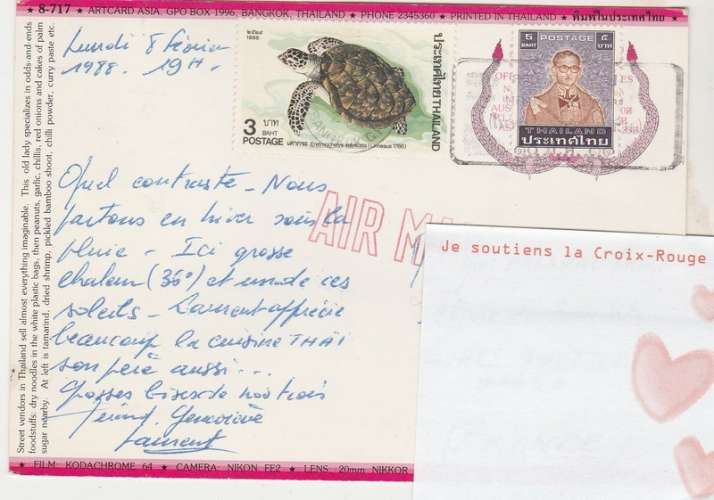 8-717 ★ ARTCARD ASIA, GPO BOX 1996, BANGKOK, THAILAND ★ PHONE 2345360 ★ PRINTED IN THAILAND ★ พิมพ์ในประเทศไทย ★
Street vendors in Thailand sell almost everything imaginable. This old lady specializes in odds-and-ends
foodstuffs: dry noodles in the white plastic bags, then peanuts, garlic, chillis, red onions and cakes of palm
sugar nearby. At left is tamarind, dried shrimp, pickled bamboo shoot, chilli powder, curry paste etc.
Lundi 8 février
1988. 19H.
๒๕๒๙
1986
3 บาท
BAHT
POSTAGE
ประเทศไทย THAILAND
5 POSTAGE ๕
BAHT บาท
THAILAND
ประเทศไทย
AIR
Quel contraste - Nous
partons en hiver sous la
pluie - Ici grosse
chaleur (35°) et un de ces
soleils - Laurent apprécie
beaucoup la cuisine THAÏ
son père aussi...
Grosses bises de nous trois
Geneviève
Laurent
Je soutiens la Croix-Rouge
★ FILM: KODACHROME 64 ★ CAMERA: NIKON FE2 ★ LENS: 20mm NIKKOR